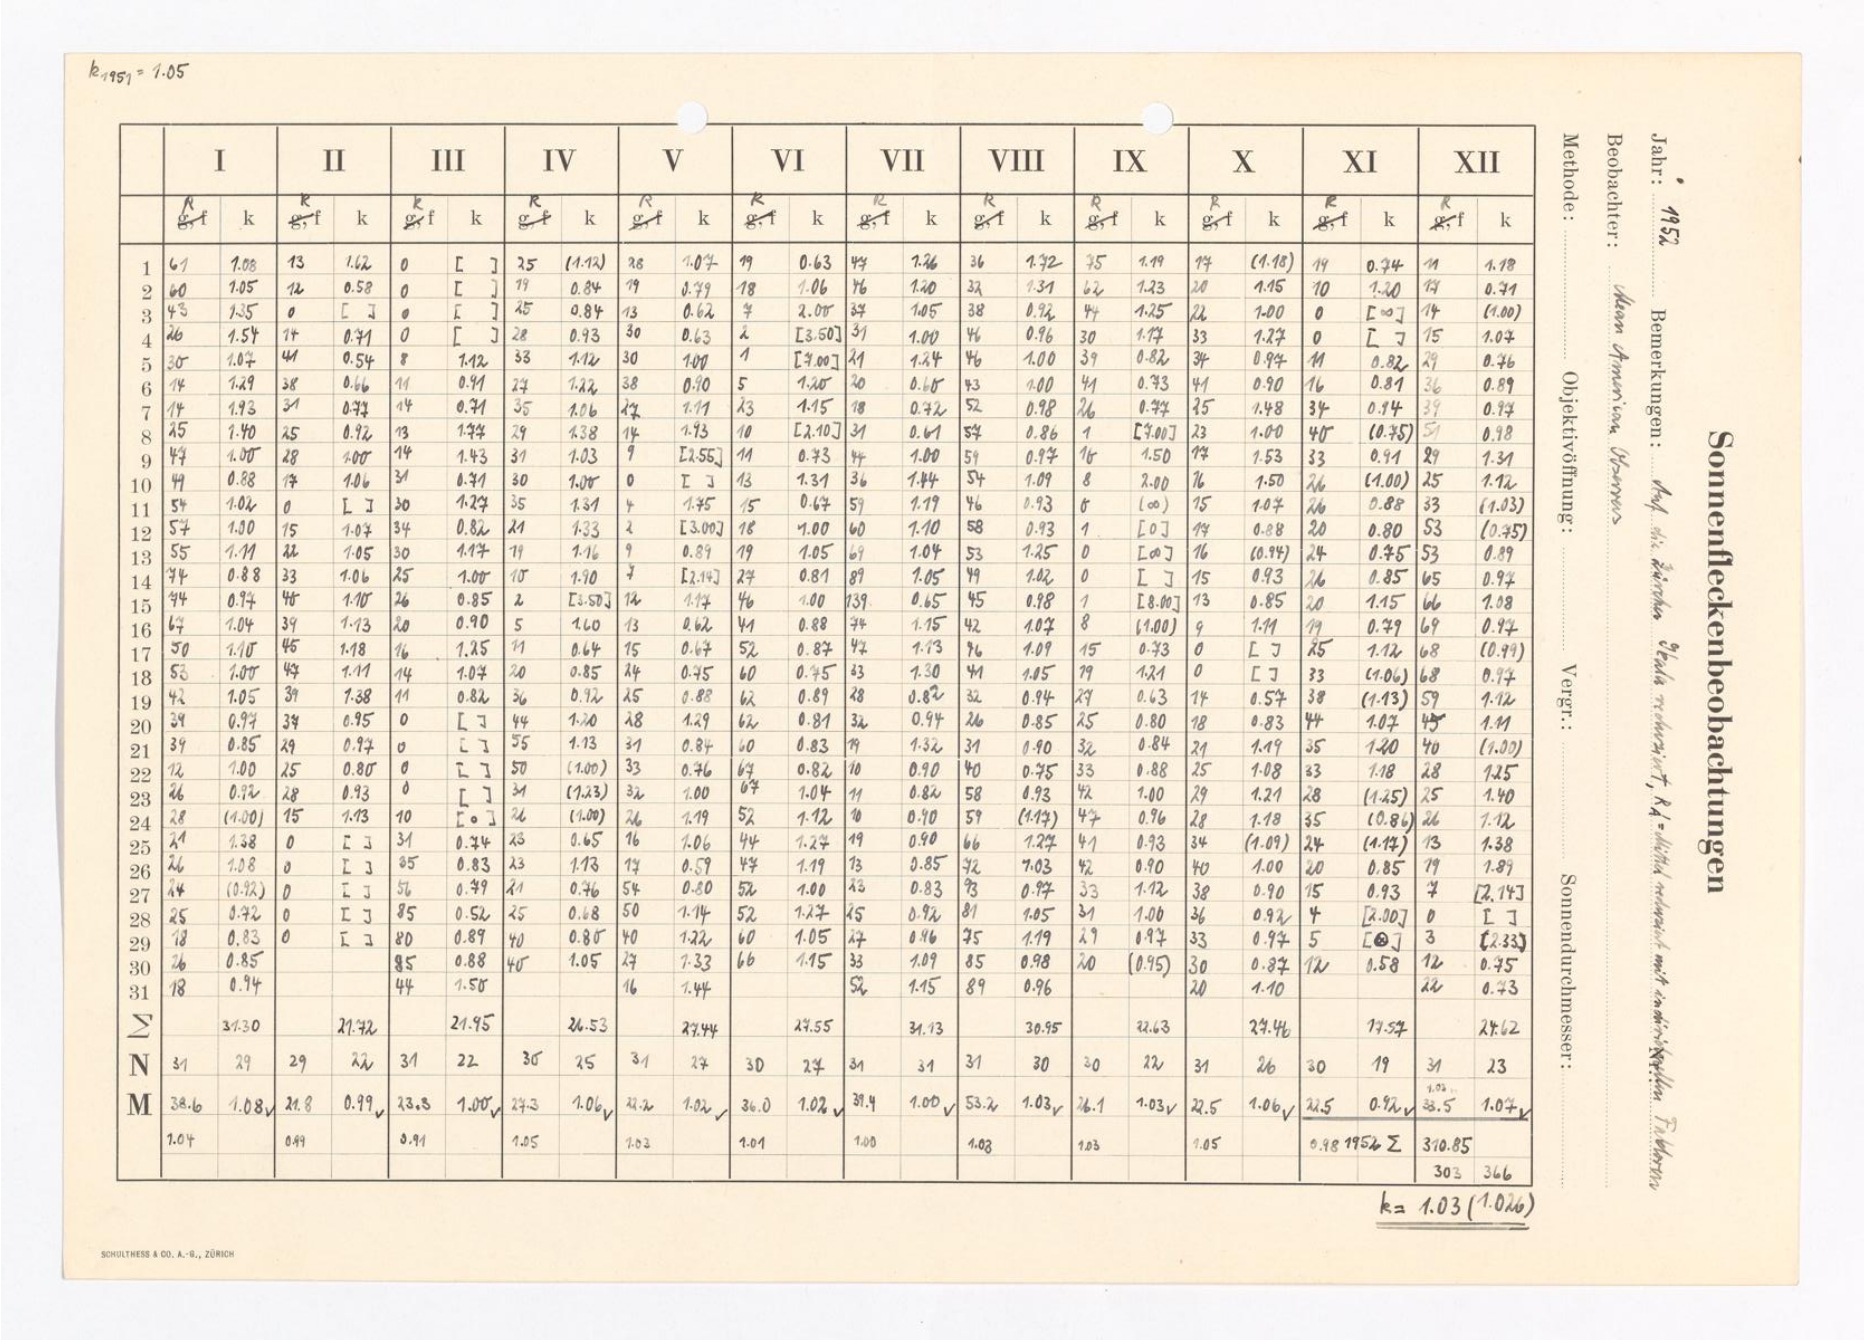 k1951 = 1.05
Sonnenfleckenbeobachtungen
Jahr: 1952 Bemerkungen: Auf die Zürcher Skala reduziert, RA = Mittel reduziert mit individuellen Faktoren
Beobachter: Mean American Observers
Methode: Objektivöffnung: Vergr.: Sonnendurchmesser:
I II III IV V VI VII VIII IX X XI XII
R R R R R R R R R R R R
g,f k g,f k g,f k g,f k g,f k g,f k g,f k g,f k g,f k g,f k g,f k g,f k
1 61 1.08 13 1.62 0 [ ] 25 (1.12) 28 1.07 19 0.63 47 1.26 36 1.72 75 1.19 17 (1.18) 19 0.74 11 1.18
2 60 1.05 12 0.58 0 [ ] 19 0.84 19 0.79 18 1.06 46 1.20 32 1.31 62 1.23 20 1.15 10 1.20 17 0.71
3 43 1.35 0 [ ] 0 [ ] 25 0.84 13 0.62 7 2.00 37 1.05 38 0.92 44 1.25 22 1.00 0 [∞] 14 (1.00)
4 26 1.54 14 0.71 0 [ ] 28 0.93 30 0.63 2 [3.50] 31 1.00 46 0.96 30 1.17 33 1.27 0 [ ] 15 1.07
5 30 1.07 41 0.54 8 1.12 33 1.12 30 1.00 1 [7.00] 21 1.24 46 1.00 39 0.82 34 0.97 11 0.82 29 0.76
6 14 1.29 38 0.66 11 0.91 27 1.22 38 0.90 5 1.20 20 0.60 43 1.00 41 0.73 41 0.90 16 0.81 36 0.89
7 14 1.93 31 0.77 14 0.71 35 1.06 27 1.11 23 1.15 18 0.72 52 0.98 26 0.77 25 1.48 34 0.94 39 0.97
8 25 1.40 25 0.92 13 1.77 29 1.38 14 1.93 10 [2.10] 31 0.61 57 0.86 1 [7.00] 23 1.00 40 (0.75) 51 0.98
9 47 1.00 28 1.00 14 1.43 31 1.03 9 [2.55] 11 0.73 44 1.00 59 0.97 10 1.50 17 1.53 33 0.91 29 1.31
10 49 0.88 17 1.06 31 0.71 30 1.00 0 [ ] 13 1.31 36 1.44 54 1.09 8 2.00 16 1.50 26 (1.00) 25 1.12
11 54 1.02 0 [ ] 30 1.27 35 1.31 4 1.75 15 0.67 59 1.19 46 0.93 0 (∞) 15 1.07 26 0.88 33 (1.03)
12 57 1.00 15 1.07 34 0.82 21 1.33 2 [3.00] 18 1.00 60 1.10 58 0.93 1 [0] 17 0.88 20 0.80 53 (0.75)
13 55 1.11 22 1.05 30 1.17 19 1.16 9 0.89 19 1.05 69 1.04 53 1.25 0 [∞] 16 (0.94) 24 0.75 53 0.89
14 74 0.88 33 1.06 25 1.00 10 1.90 7 [2.14] 27 0.81 89 1.05 49 1.02 0 [ ] 15 0.93 26 0.85 65 0.97
15 74 0.97 40 1.10 26 0.85 2 [3.50] 12 1.17 46 1.00 139 0.65 45 0.98 1 [8.00] 13 0.85 20 1.15 66 1.08
16 67 1.04 39 1.13 20 0.90 5 1.60 13 0.62 41 0.88 74 1.15 42 1.07 8 (1.00) 9 1.11 19 0.79 69 0.97
17 50 1.10 45 1.18 16 1.25 11 0.64 15 0.67 52 0.87 47 1.13 46 1.09 15 0.73 0 [ ] 25 1.12 68 (0.99)
18 53 1.00 47 1.11 14 1.07 20 0.85 24 0.75 60 0.75 33 1.30 41 1.05 19 1.21 0 [ ] 33 (1.06) 68 0.97
19 42 1.05 39 1.38 11 0.82 36 0.92 25 0.88 62 0.89 28 0.82 32 0.94 27 0.63 14 0.57 38 (1.13) 59 1.12
20 39 0.97 37 0.95 0 [ ] 44 1.20 28 1.29 62 0.81 32 0.94 26 0.85 25 0.80 18 0.83 44 1.07 45 1.11
21 39 0.85 29 0.97 0 [ ] 55 1.13 31 0.84 60 0.83 19 1.32 31 0.90 32 0.84 21 1.19 35 1.20 40 (1.00)
22 12 1.00 25 0.80 0 [ ] 50 (1.00) 33 0.76 67 0.82 10 0.90 40 0.75 33 0.88 25 1.08 33 1.18 28 1.25
23 26 0.92 28 0.93 0 [ ] 31 (1.23) 32 1.00 67 1.04 11 0.82 58 0.93 42 1.00 29 1.21 28 (1.25) 25 1.40
24 28 (1.00) 15 1.13 10 [0] 26 (1.00) 26 1.19 52 1.12 10 0.90 59 (1.17) 47 0.96 28 1.18 35 (0.86) 26 1.12
25 21 1.38 0 [ ] 31 0.74 23 0.65 16 1.06 44 1.27 19 0.90 66 1.27 41 0.93 34 (1.09) 24 (1.17) 13 1.38
26 26 1.08 0 [ ] 35 0.83 23 1.13 17 0.59 47 1.19 13 0.85 72 1.03 42 0.90 40 1.00 20 0.85 19 1.89
27 24 (0.92) 0 [ ] 56 0.79 21 0.76 54 0.80 52 1.00 23 0.83 93 0.97 33 1.12 38 0.90 15 0.93 7 [2.14]
28 25 0.72 0 [ ] 85 0.52 25 0.68 50 1.14 52 1.27 25 0.92 81 1.05 31 1.00 36 0.92 4 [2.00] 0 [ ]
29 18 0.83 0 [ ] 80 0.89 40 0.80 40 1.22 60 1.05 27 0.96 75 1.19 29 0.97 33 0.97 5 3 [2.33]
30 26 0.85 85 0.88 40 1.05 27 1.33 66 1.15 33 1.09 85 0.98 20 (0.95) 30 0.87 12 0.58 12 0.75
31 18 0.94 44 1.50 16 1.44 52 1.15 89 0.96 20 1.10 22 0.73
Σ 31.30 21.72 21.95 26.53 27.44 27.55 31.13 30.95 22.63 27.46 17.57 24.62
N 31 29 29 22 31 22 30 25 31 27 30 27 31 31 31 30 30 22 31 26 30 19 31 23
M 38.6 1.08✓ 21.8 0.99✓ 23.3 1.00✓ 27.3 1.06✓ 22.2 1.02✓ 36.0 1.02✓ 39.4 1.00✓ 53.2 1.03✓ 26.1 1.03✓ 22.5 1.06✓ 22.5 0.92✓ 33.5 1.07✓
1.04 0.99 0.91 1.05 1.03 1.01 1.00 1.03 1.03 1.05 0.98 1952 Σ 310.85
303 366
k = 1.03 (1.026)
SCHULTHESS & CO. A.-G., ZÜRICH